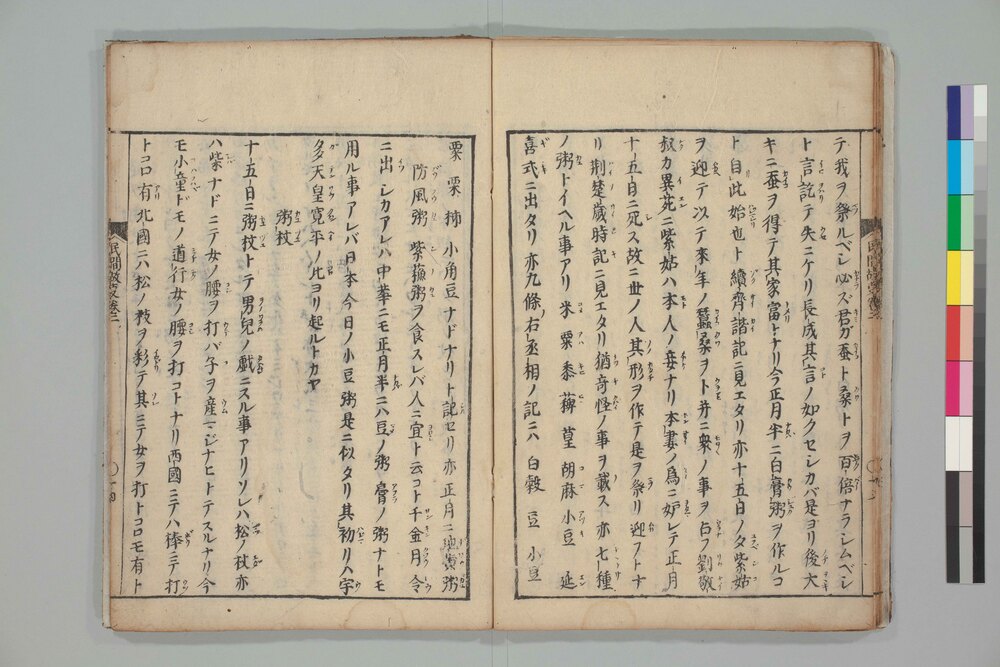 テ我ヲ祭ルベシ必ズ君ガ蚕ト桑トヲ百倍ナラシムベシ
ト言訖テ失ニケリ長成其言ノ如クセシカバ是ヨリ後大
キニ蚕ヲ得テ其家富トナリ今正月半ニ白膏粥ヲ作ルコ
ト自此始也ト續齊諧記ニ見エタリ亦十五日ノ夕紫姑
ヲ迎テ以テ来年ノ蠶桑ヲト并ニ衆ノ事ヲ占フ劉敬
叔カ異苑ニ紫姑ハ本人ノ妾ナリ本妻ノ為ニ妒レテ正月
十五日ニ死ス故ニ世ノ人其形ヲ作テ是ヲ祭リ迎フトナ
リ荊楚歳時記ニ見エタリ猶奇怪ノ事ヲ載ス亦七種
ノ粥トイヘル事アリ米粟黍薭葟胡麻小豆延
喜式ニ出タリ亦九條右丞相ノ記ニハ白穀豆小豆
粟栗柿小角豆ナドナリト記セリ亦正月ニ地黄粥
防風粥紫蘓粥ヲ食スレバ人ニ宜ト云コト千金月令
ニ出シカアレハ中華ニモ正月半ニハ豆ノ粥膏ノ粥ナトモ
用ル事アレバ日本今日ノ小豆粥是ニ似タリ其初リハ宇
多天皇寛平ノ比ヨリ起ルトカヤ
粥杖
十五日ニ粥杖トテ男兒ノ戯ニスル事アリソレハ松ノ杖亦
ハ柴ナドニテ女ノ腰ヲ打バ子ヲ産マジナヒトテスルナリ今
モ小童ドモノ道行女ノ腰ヲ打コトナリ西國ニテハ棒ニテ打
トコロ有北國ニハ松ノ枝ヲ彩テ其ニテ女ヲ打トコロモ有ト